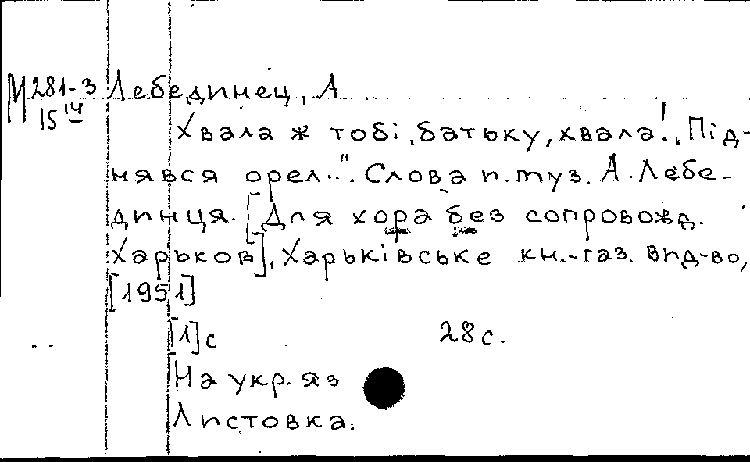 М 281-3 Лебединец, А
15 14
Хвала ж тобі, батьку, хвала! „Під-
нявся орел..." Слова и муз. А. Лебе-
динця. [Для хора без сопровожд.
Харьков], Харьківське кн.-газ. вид-во,
[1951]
[1] с 28 с.
На укр. яз
Листовка.